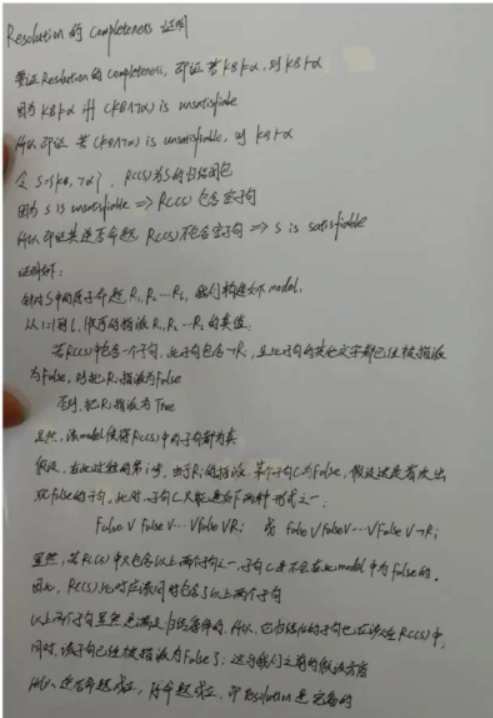 Resolution 的 Completeness 证明
要证 Resolution 的 completeness, 即证 若 KB⊨α, 则 KB⊢α
因为 KB⊨α iff (KB∧¬α) is unsatisfiable
所以 即证 若 (KB∧¬α) is unsatisfiable, 则 KB⊢α
令 S={KB, ¬α}, RC(S)为S的归结闭包
因为 S is unsatisfiable ⇒ RC(S) 包含空子句
所以 即证其逆否命题 RC(S)不包含空子句 ⇒ S is satisfiable
证明如下:
针对S中的原子命题 R₁, R₂ … Rₖ, 我们构造如下 model,
从 i=1到k, 依次的指派 R₁, R₂ … Rₖ 的真值:
若RC(S)中包含一个子句, 此子句包含¬Rᵢ, 且此子句的其他文字都已经被指派
为False, 则把 Rᵢ指派为False
否则, 把Rᵢ指派为 True
显然, 该model使得RC(S)中的子句都为真
假设, 在此过程的第i步, 由于Rᵢ的指派, 某个子句C为False, 假设这是首次出
现false的子句, 此时, 子句C只能是如下两种形式之一:
False ∨ False ∨ … ∨ False ∨ Rᵢ 或 False ∨ False ∨ … ∨ False ∨ ¬Rᵢ
显然, 若RC(S)中只包含以上两个子句之一, 子句C是不会在此model中为false的.
因此, RC(S)此时应该同时包含了以上两个子句
以上两个子句显然是满足归结条件的, 所以, 它归结后的子句也应该在RC(S)中;
同时, 该子句已经被指派为False了; 这与我们之前的假设矛盾
所以 逆否命题成立, 原命题成立, 即 Resolution 是完备的